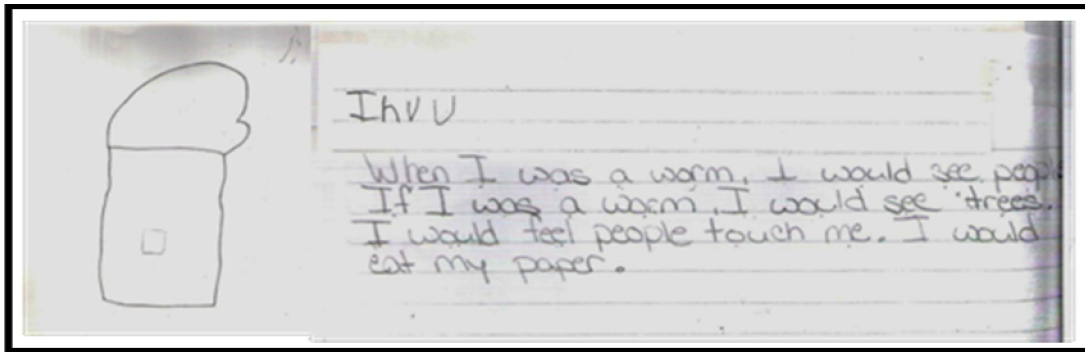 IhVU
When I was a worm, I would see people
If I was a worm, I would see trees.
I would feel people touch me. I would
eat my paper.